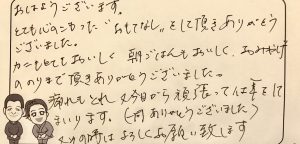 おはようございます。
とても心のこもった"おもてなし"をして頂きありがとう
ございました。
カニもとてもおいしく 朝ごはんもおいしく、おみやげ
ののりまで頂きありがとうございました。
疲れもとれ 又今日から頑張って仕事をして
まいります。(一同ありがとうございました)
又の時はよろしくお願い致します